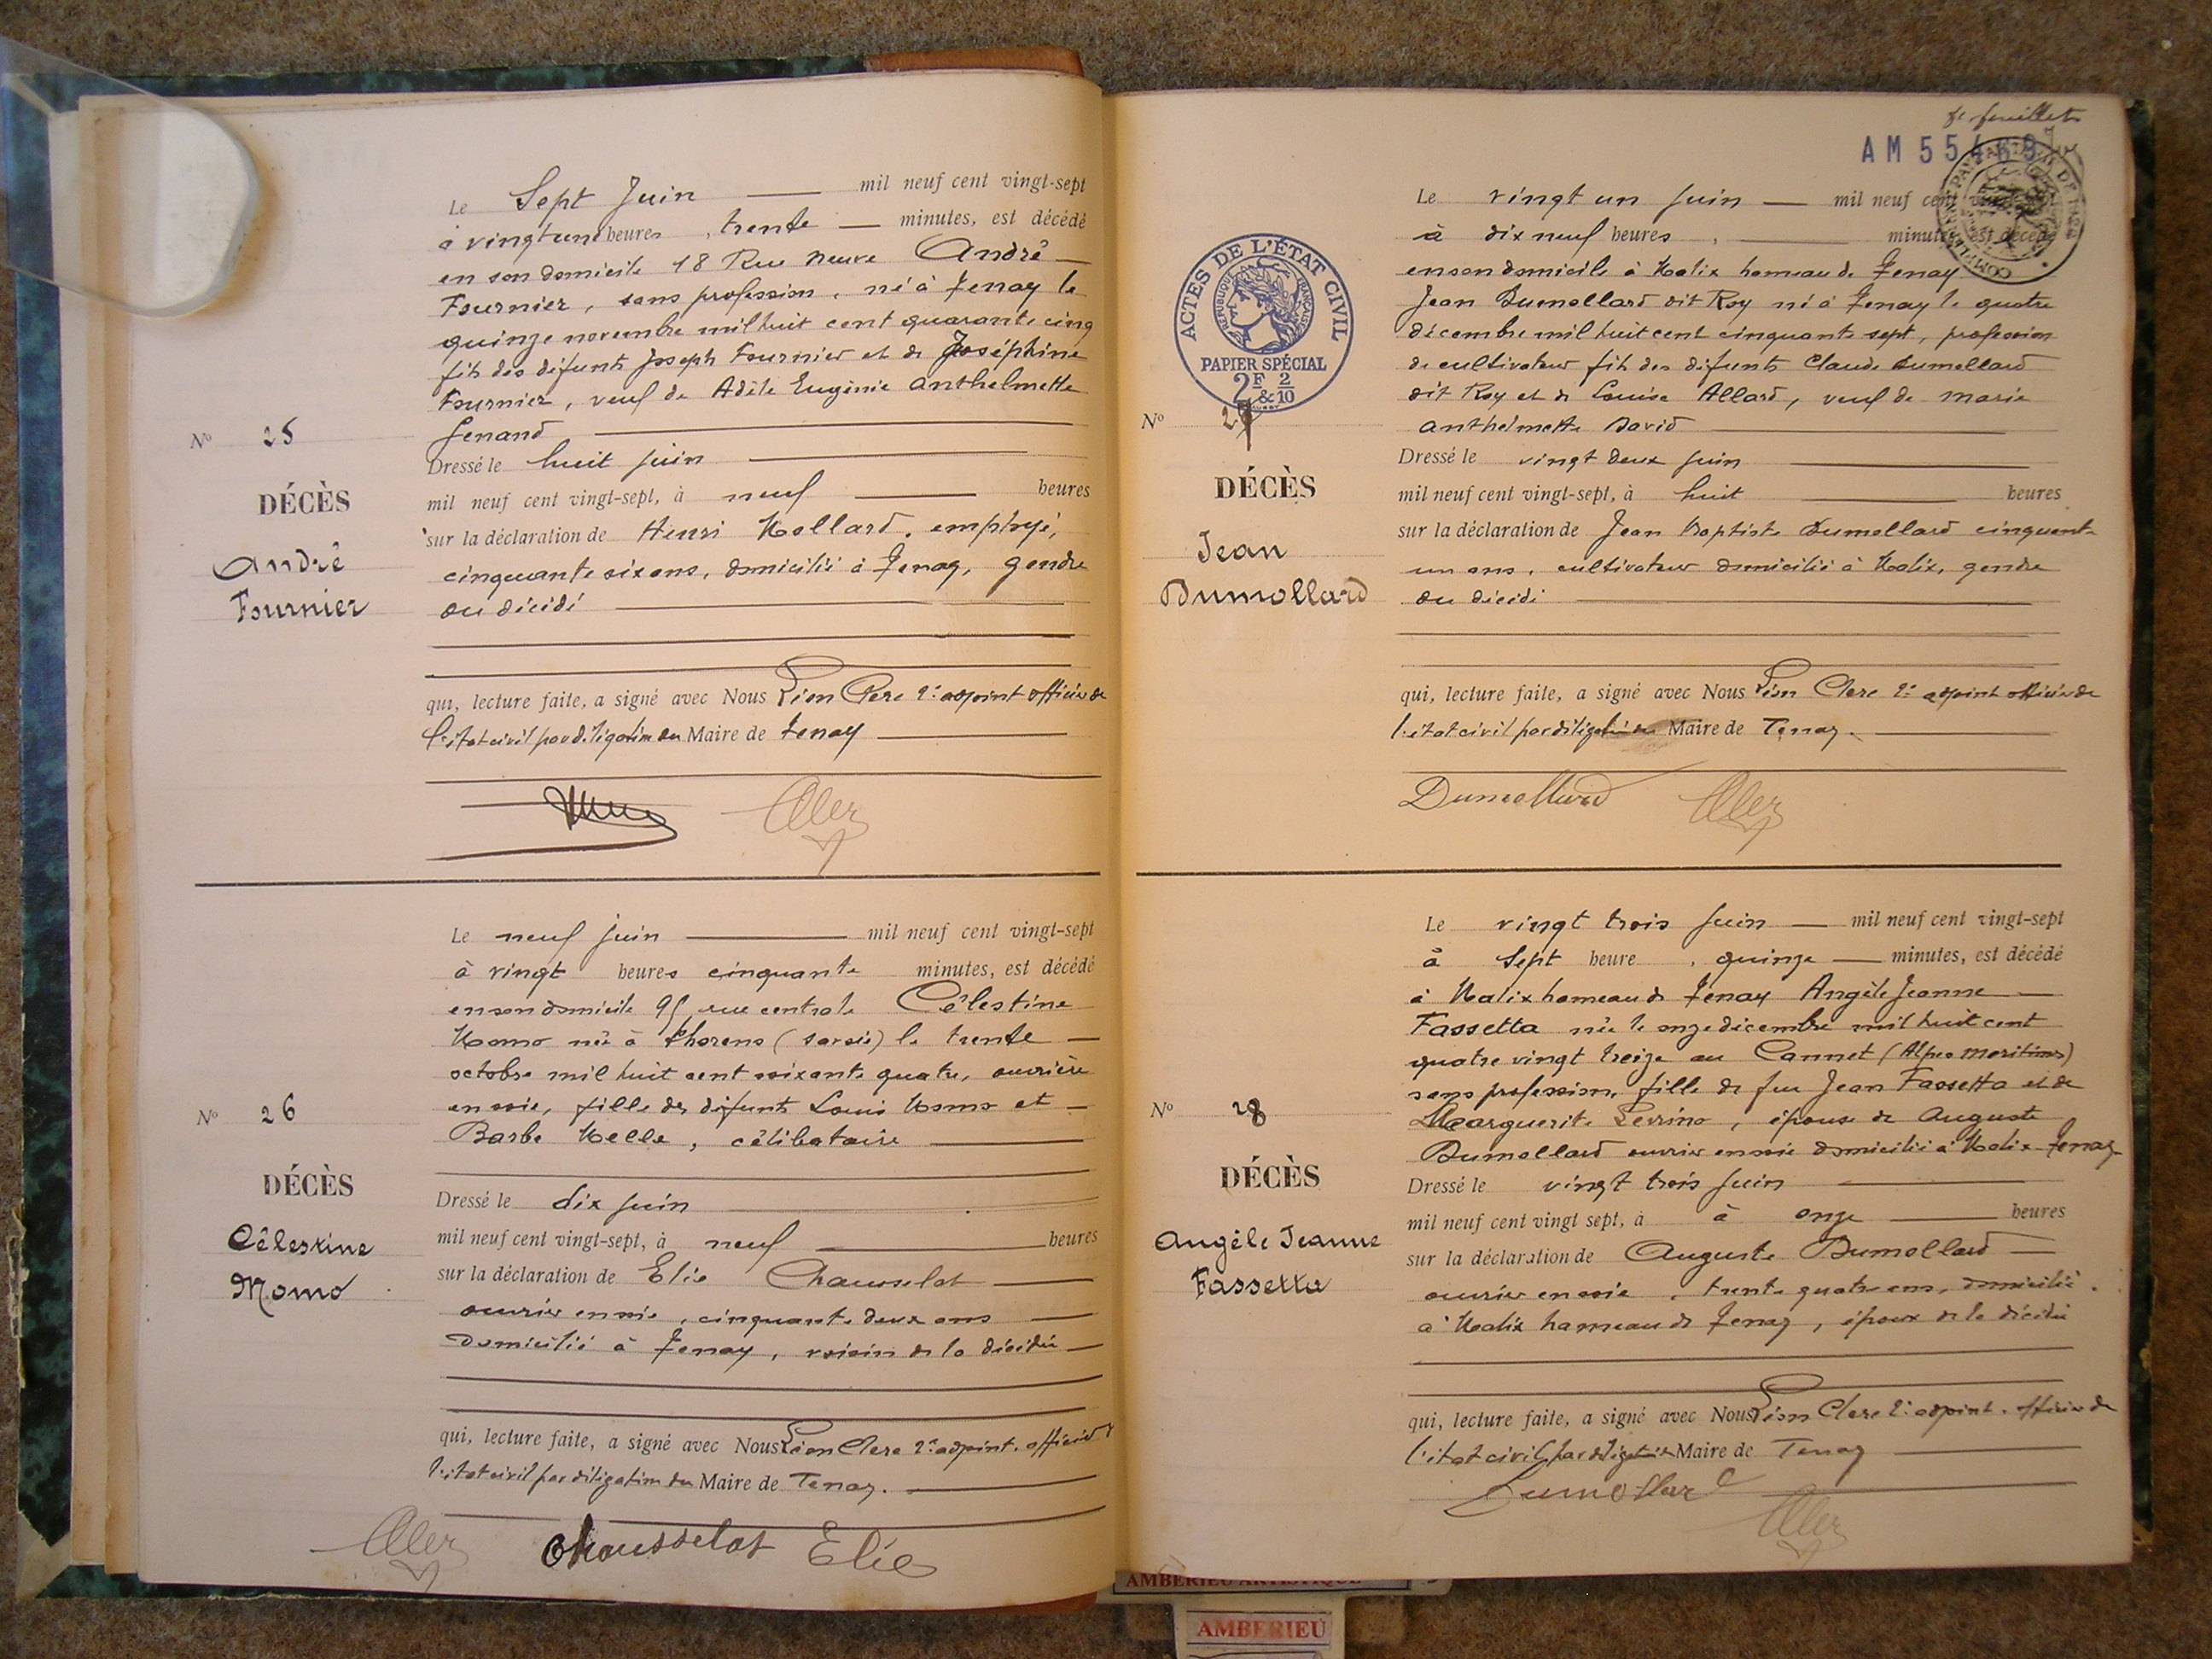 Le Sept Juin mil neuf cent vingt-sept
à vingt une heures, trente minutes, est décédé
en son domicile 18 Rue Neuve André
Fournier, sans profession, né à Tenay le
quinze novembre mil huit cent quarante cinq
fils des défunts Joseph Fournier et de Joséphine
Fournier, veuf de Adèle Eugénie Anthelmette
Genand
Nº 25
DÉCÈS
André
Fournier
Dressé le huit juin
mil neuf cent vingt-sept, à neuf heures
sur la déclaration de Henri Mollard, employé,
cinquante six ans, domicilié à Tenay, gendre
du décédé
qui, lecture faite, a signé avec Nous Léon Clerc 2e adjoint officier de
l'état civil par délégation du Maire de Tenay
Clerc
Le neuf juin mil neuf cent vingt-sept
à vingt heures cinquante minutes, est décédé
en son domicile 95 rue centrale Célestine
Momo née à Thorens (Savoie) le trente
octobre mil huit cent soixante quatre, ouvrière
en soie, fille des défunts Louis Momo et
Barbe Melle, célibataire
Nº 26
DÉCÈS
Célestine
Momo
Dressé le dix juin
mil neuf cent vingt-sept, à neuf heures
sur la déclaration de Elie Chausselat
ouvrier en soie, cinquante deux ans
domicilié à Tenay, voisin de la décédée
qui, lecture faite, a signé avec Nous Léon Clerc 2e adjoint, officier d
l'état civil par délégation du Maire de Tenay.
Clerc Chausselat Elie
feuillet
AM 554
Le vingt un juin mil neuf cent vingt-sept
à dix neuf heures, minutes, est décédé
en son domicile à Malix hameau de Tenay
Jean Dumollard dit Roy né à Tenay le quatre
décembre mil huit cent cinquante sept, profession
de cultivateur fils des défunts Claude Dumollard
dit Roy et de Louise Allard, veuf de Marie
Anthelmette David
ACTES DE L'ÉTAT CIVIL
RÉPUBLIQUE FRANÇAISE
PAPIER SPÉCIAL
2F & 2/10
Nº 27
DÉCÈS
Jean
Dumollard
Dressé le vingt deux juin
mil neuf cent vingt-sept, à huit heures
sur la déclaration de Jean Baptiste Dumollard cinquante
un ans, cultivateur domicilié à Malix, gendre
du décédé
qui, lecture faite, a signé avec Nous Léon Clerc 2e adjoint officier de
l'état civil par délégation du Maire de Tenay.
Dumollard Clerc
Le vingt trois juin mil neuf cent vingt-sept
à Sept heure, quinze minutes, est décédé
à Malix hameau de Tenay Angèle Jeanne
Fassetta née le onze décembre mil huit cent
quatre vingt treize au Cannet (Alpes Maritimes)
sans profession, fille de feu Jean Fassetta et de
Marguerite Perrino, épouse de Auguste
Dumollard ouvrier en soie domicilié à Malix-Tenay
Nº 28
DÉCÈS
Angèle Jeanne
Fassetta
Dressé le vingt trois juin
mil neuf cent vingt sept, à à onze heures
sur la déclaration de Auguste Dumollard
ouvrier en soie, trente quatre ans, domicilié
à Malix hameau de Tenay, époux de la décédée
qui, lecture faite, a signé avec Nous Léon Clerc 2e adjoint, officier de
l'état civil par délégation Maire de Tenay
Dumollard
Clerc
AMBERIEU ARTISTIQUE
AMBERIEU